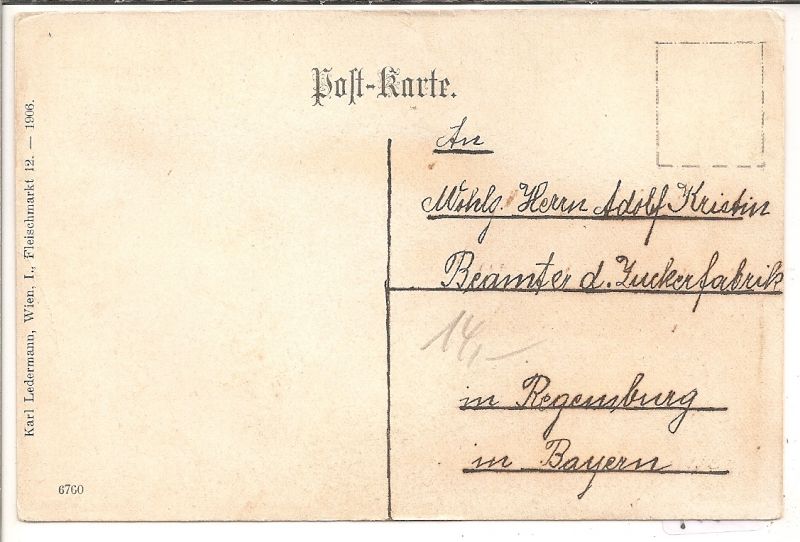 Post-Karte.
An
Wohlg. Herrn Adolf Kristin
Beamter d. Zuckerfabrik
14,-
in Regensburg
in Bayern
Karl Ledermann, Wien, I., Fleischmarkt 12. — 1906.
6760